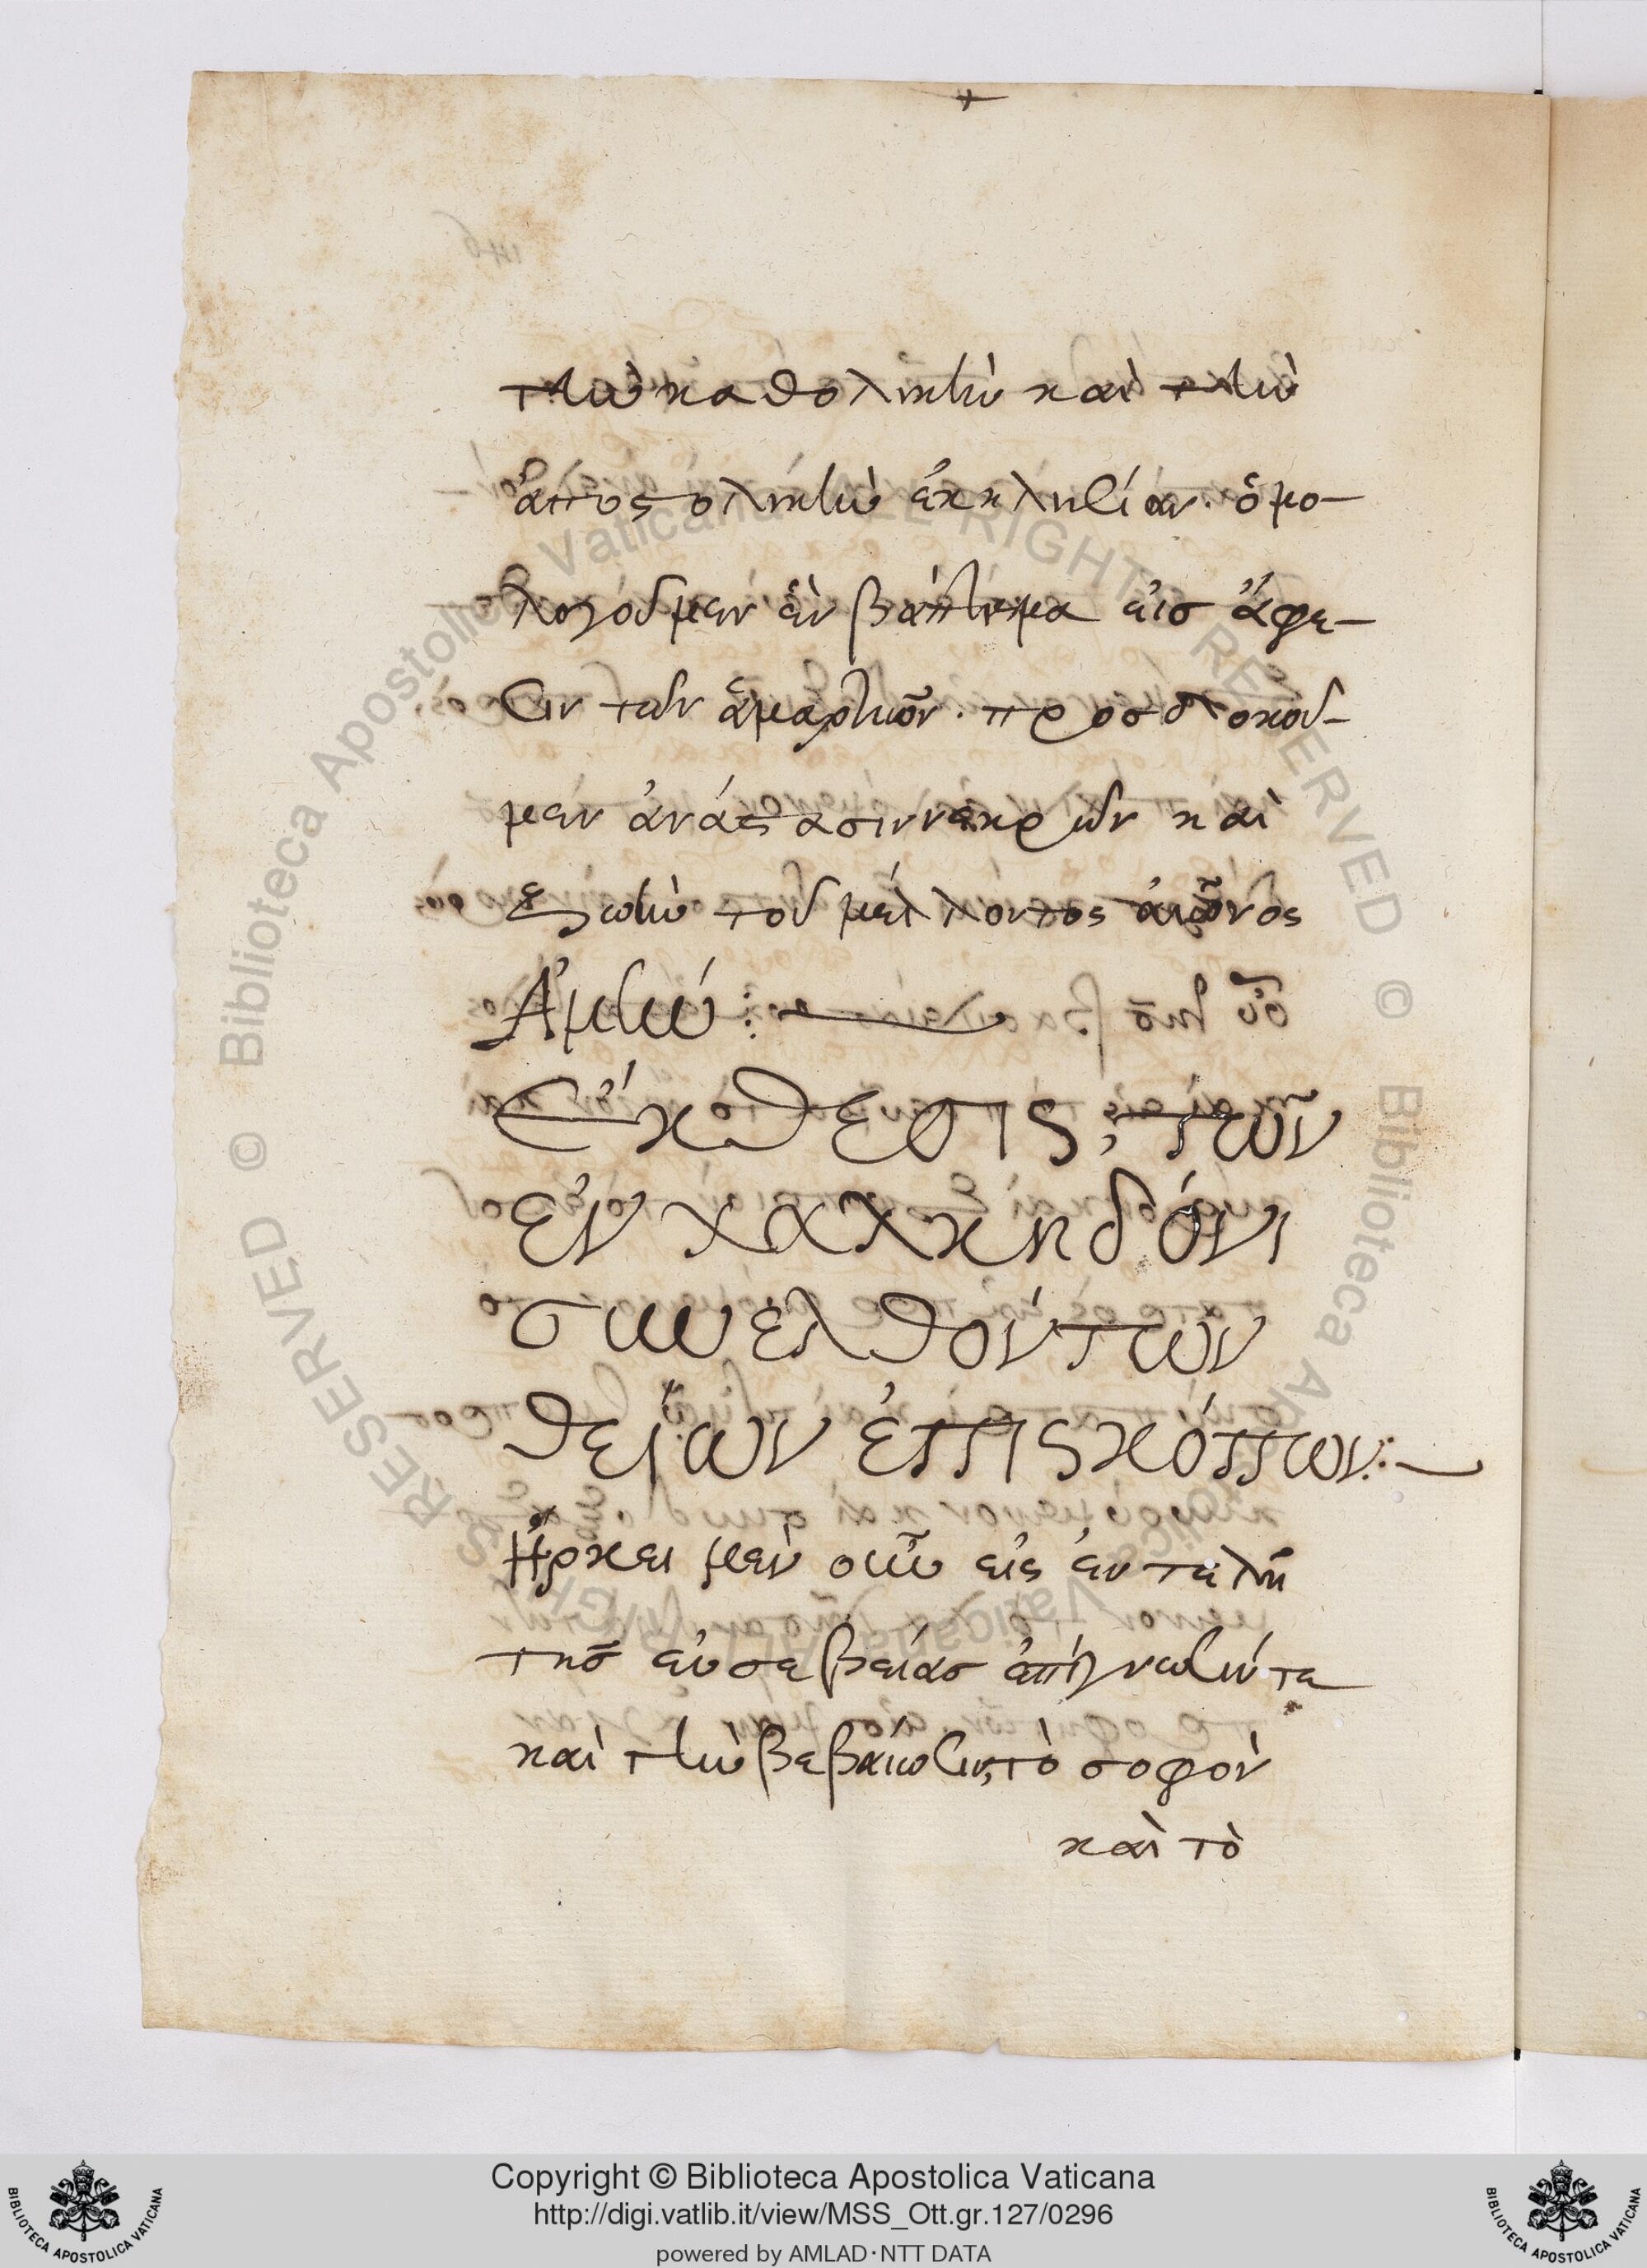 τὴν καθολικὴν καὶ τὴν
ἀποστολικὴν ἐκκλησίαν. ὁμο-
λογοῦμεν ἓν βάπτισμα εἰσ ἄφε-
σιν τῶν ἁμαρτιῶν. προσδοκοῦ-
μεν ἀνάστασιν νεκρῶν καὶ
ζωὴν τοῦ μέλλοντος αἰῶνος
Ἀμήν:
Ἔκθεσις, τῶν
ἐν χαλκηδόνι
συνελθόντων
θείων ἐπισκόπων:
Ἤρκει μὲν οὖν εἰς ἐντελῆ
τῆσ εὐσεβείασ ἐπίγνωσίν τε
καὶ τὴν βεβαίωσιν, τὸ σοφὸν
καὶ τὸ
© Biblioteca Apostolica Vaticana ALL RIGHTS RESERVED
© Biblioteca Apostolica Vaticana ALL RIGHTS RESERVED
Copyright © Biblioteca Apostolica Vaticana
http://digi.vatlib.it/view/MSS_Ott.gr.127/0296
powered by AMLAD·NTT DATA
BIBLIOTECA APOSTOLICA VATICANA
BIBLIOTECA APOSTOLICA VATICANA